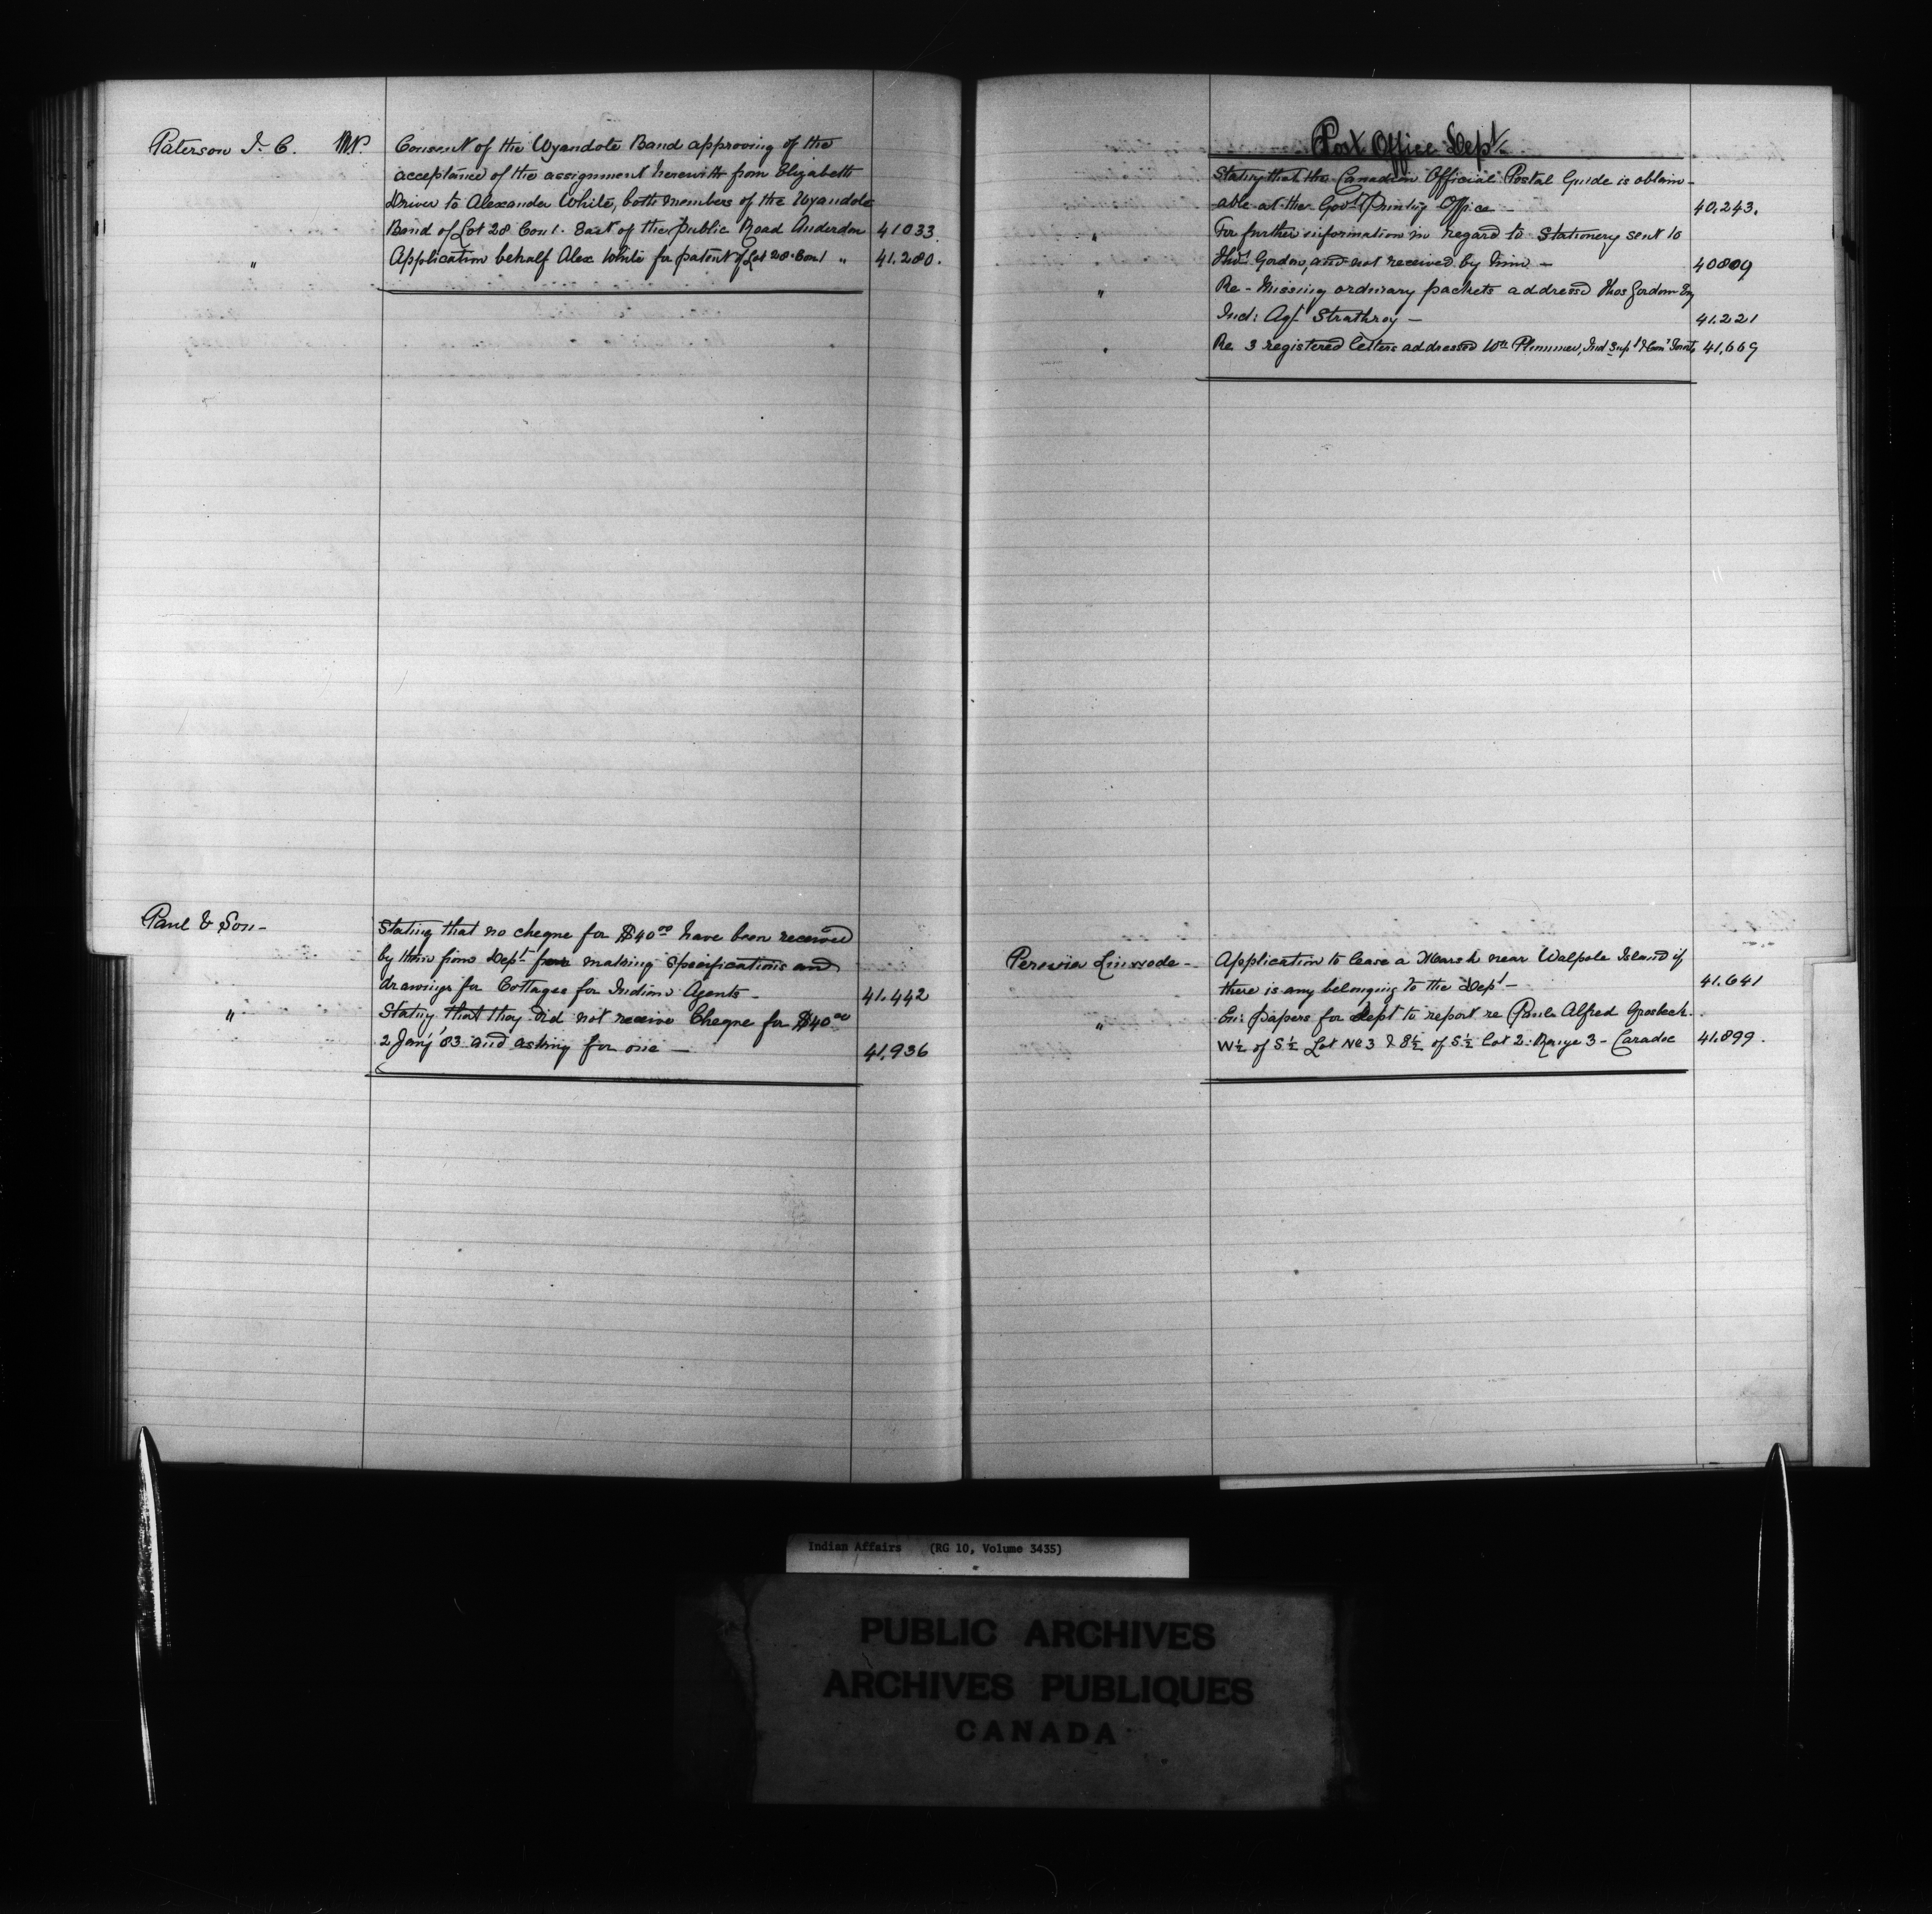 Paterson J. C. M.P. Consent of the Wyandote Band approving of the
acceptance of the assignment herewith from Elizabeth
Driver to Alexander White, both members of the Wyandote
Band of Lot 28 Con 1. East of the public Road Anderdon 41033.
" Application behalf Alex White for patent of Lot 28. Con 1 " 41.280.
Paul & Son- Stating that no cheque for $40 00 have been received
by them from Dept for making Specifications and
drawings for Cottages for Indian Agents- 41.442
" Stating that they did not receive Cheque for $40 00
2 Jany '83 and asking for one — 41.936
Post Office Dept
Stating that the Canadian Official Postal Guide is obtain-
able at the Govt Printing Office - 40.243.
" For further information in regard to Stationery sent to
Thos Gordon, and not received by him — 40809
" Re- Missing ordinary packets addressed Thos Gordon Esq
Ind: Agt Strathroy — 41.221
" Re. 3 registered letters addressed Wm Plummer, Ind Supt & Comr Toronto 41,669
Application to lease a Marsh near Walpole Island if
there is any belonging to the Dept - 41.641
" En: papers for dept to report re Alfred
W½ of S½ Lot No 3 & 8½ of S½ Lot 2. Range 3- Caradoc 41.899.
Indian Affairs (RG 10, Volume 3435)
PUBLIC ARCHIVES
ARCHIVES PUBLIQUES
CANADA